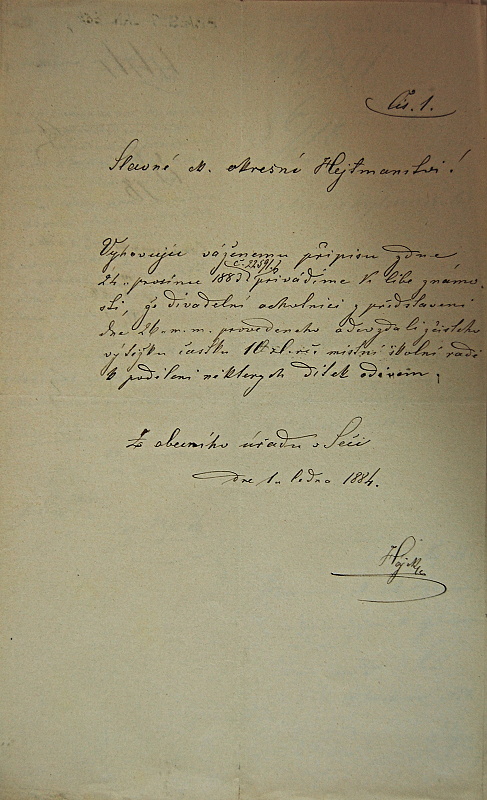 Čís. 1.
Slavné c. k. okresní Hejtmanství!
Vyhovujíc váženému přípisu ze dne
č. 22591
24. prosince 1883 přivádíme k libé známo-
sti, že divadelní ochotníci z představení
dne 26. m. m. provedeného odevzdali z čistého
výtěžku částku 10 zl. místní školní radě
k podělení některých dítek oděvem.
Z obecního úřadu v Seči
dne 1. ledna 1884.